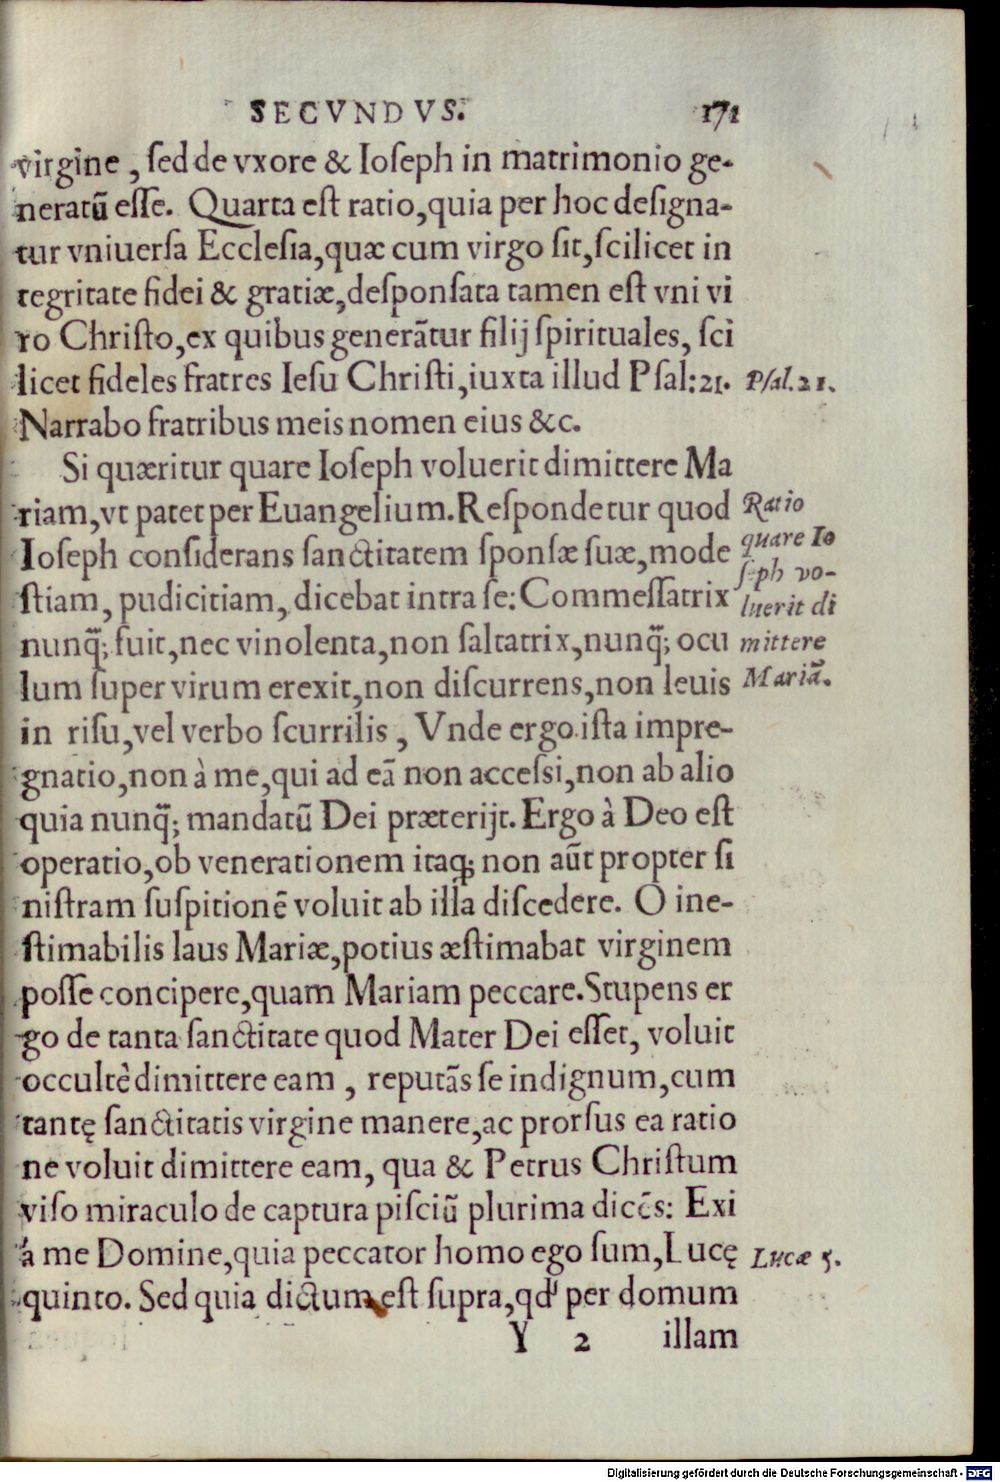 SECVNDVS. 171
virgine, ſed de vxore & Ioſeph in matrimonio ge-
neratū eſſe. Quarta eſt ratio, quia per hoc deſigna-
tur vniuerſa Eccleſia, quæ cum virgo ſit, ſcilicet in
tegritate fidei & gratiæ, deſponſata tamen eſt vni vi
ro Chriſto, ex quibus generātur filij ſpirituales, ſci
licet fideles fratres Ieſu Chriſti, iuxta illud Pſal: 21.
Pſal. 21.
Narrabo fratribus meis nomen eius &c.
Si quæritur quare Ioſeph voluerit dimittere Ma
riam, vt patet per Euangelium. Reſpondetur quod
Ioſeph conſiderans ſanctitatem ſponſæ ſuæ, mode
ſtiam, pudicitiam, dicebat intra ſe: Commeſſatrix
nunq̄; fuit, nec vinolenta, non ſaltatrix, nunq̄; ocu
lum ſuper virum erexit, non diſcurrens, non leuis
Ratio
quare Io
ſeph vo-
luerit di
mittere
Mariā.
in riſu, vel verbo ſcurrilis, Vnde ergo iſta impre-
gnatio, non à me, qui ad eā non acceſſi, non ab alio
quia nunq̄; mandatū Dei præterijt. Ergo à Deo eſt
operatio, ob venerationem itaq; non aūt propter ſi
niſtram ſuſpitionē voluit ab illa diſcedere. O ine-
ſtimabilis laus Mariæ, potius æſtimabat virginem
poſſe concipere, quam Mariam peccare. Stupens er
go de tanta ſanctitate quod Mater Dei eſſet, voluit
occultè dimittere eam, reputās ſe indignum, cum
tantę ſanctitatis virgine manere, ac prorſus ea ratio
ne voluit dimittere eam, qua & Petrus Chriſtum
viſo miraculo de captura piſciū plurima dicēs: Exi
à me Domine, quia peccator homo ego ſum, Lucę
Lucæ 5.
quinto. Sed quia dictum eſt ſupra, qd' per domum
Y 2 illam
Digitalisierung gefördert durch die Deutsche Forschungsgemeinschaft - DFG